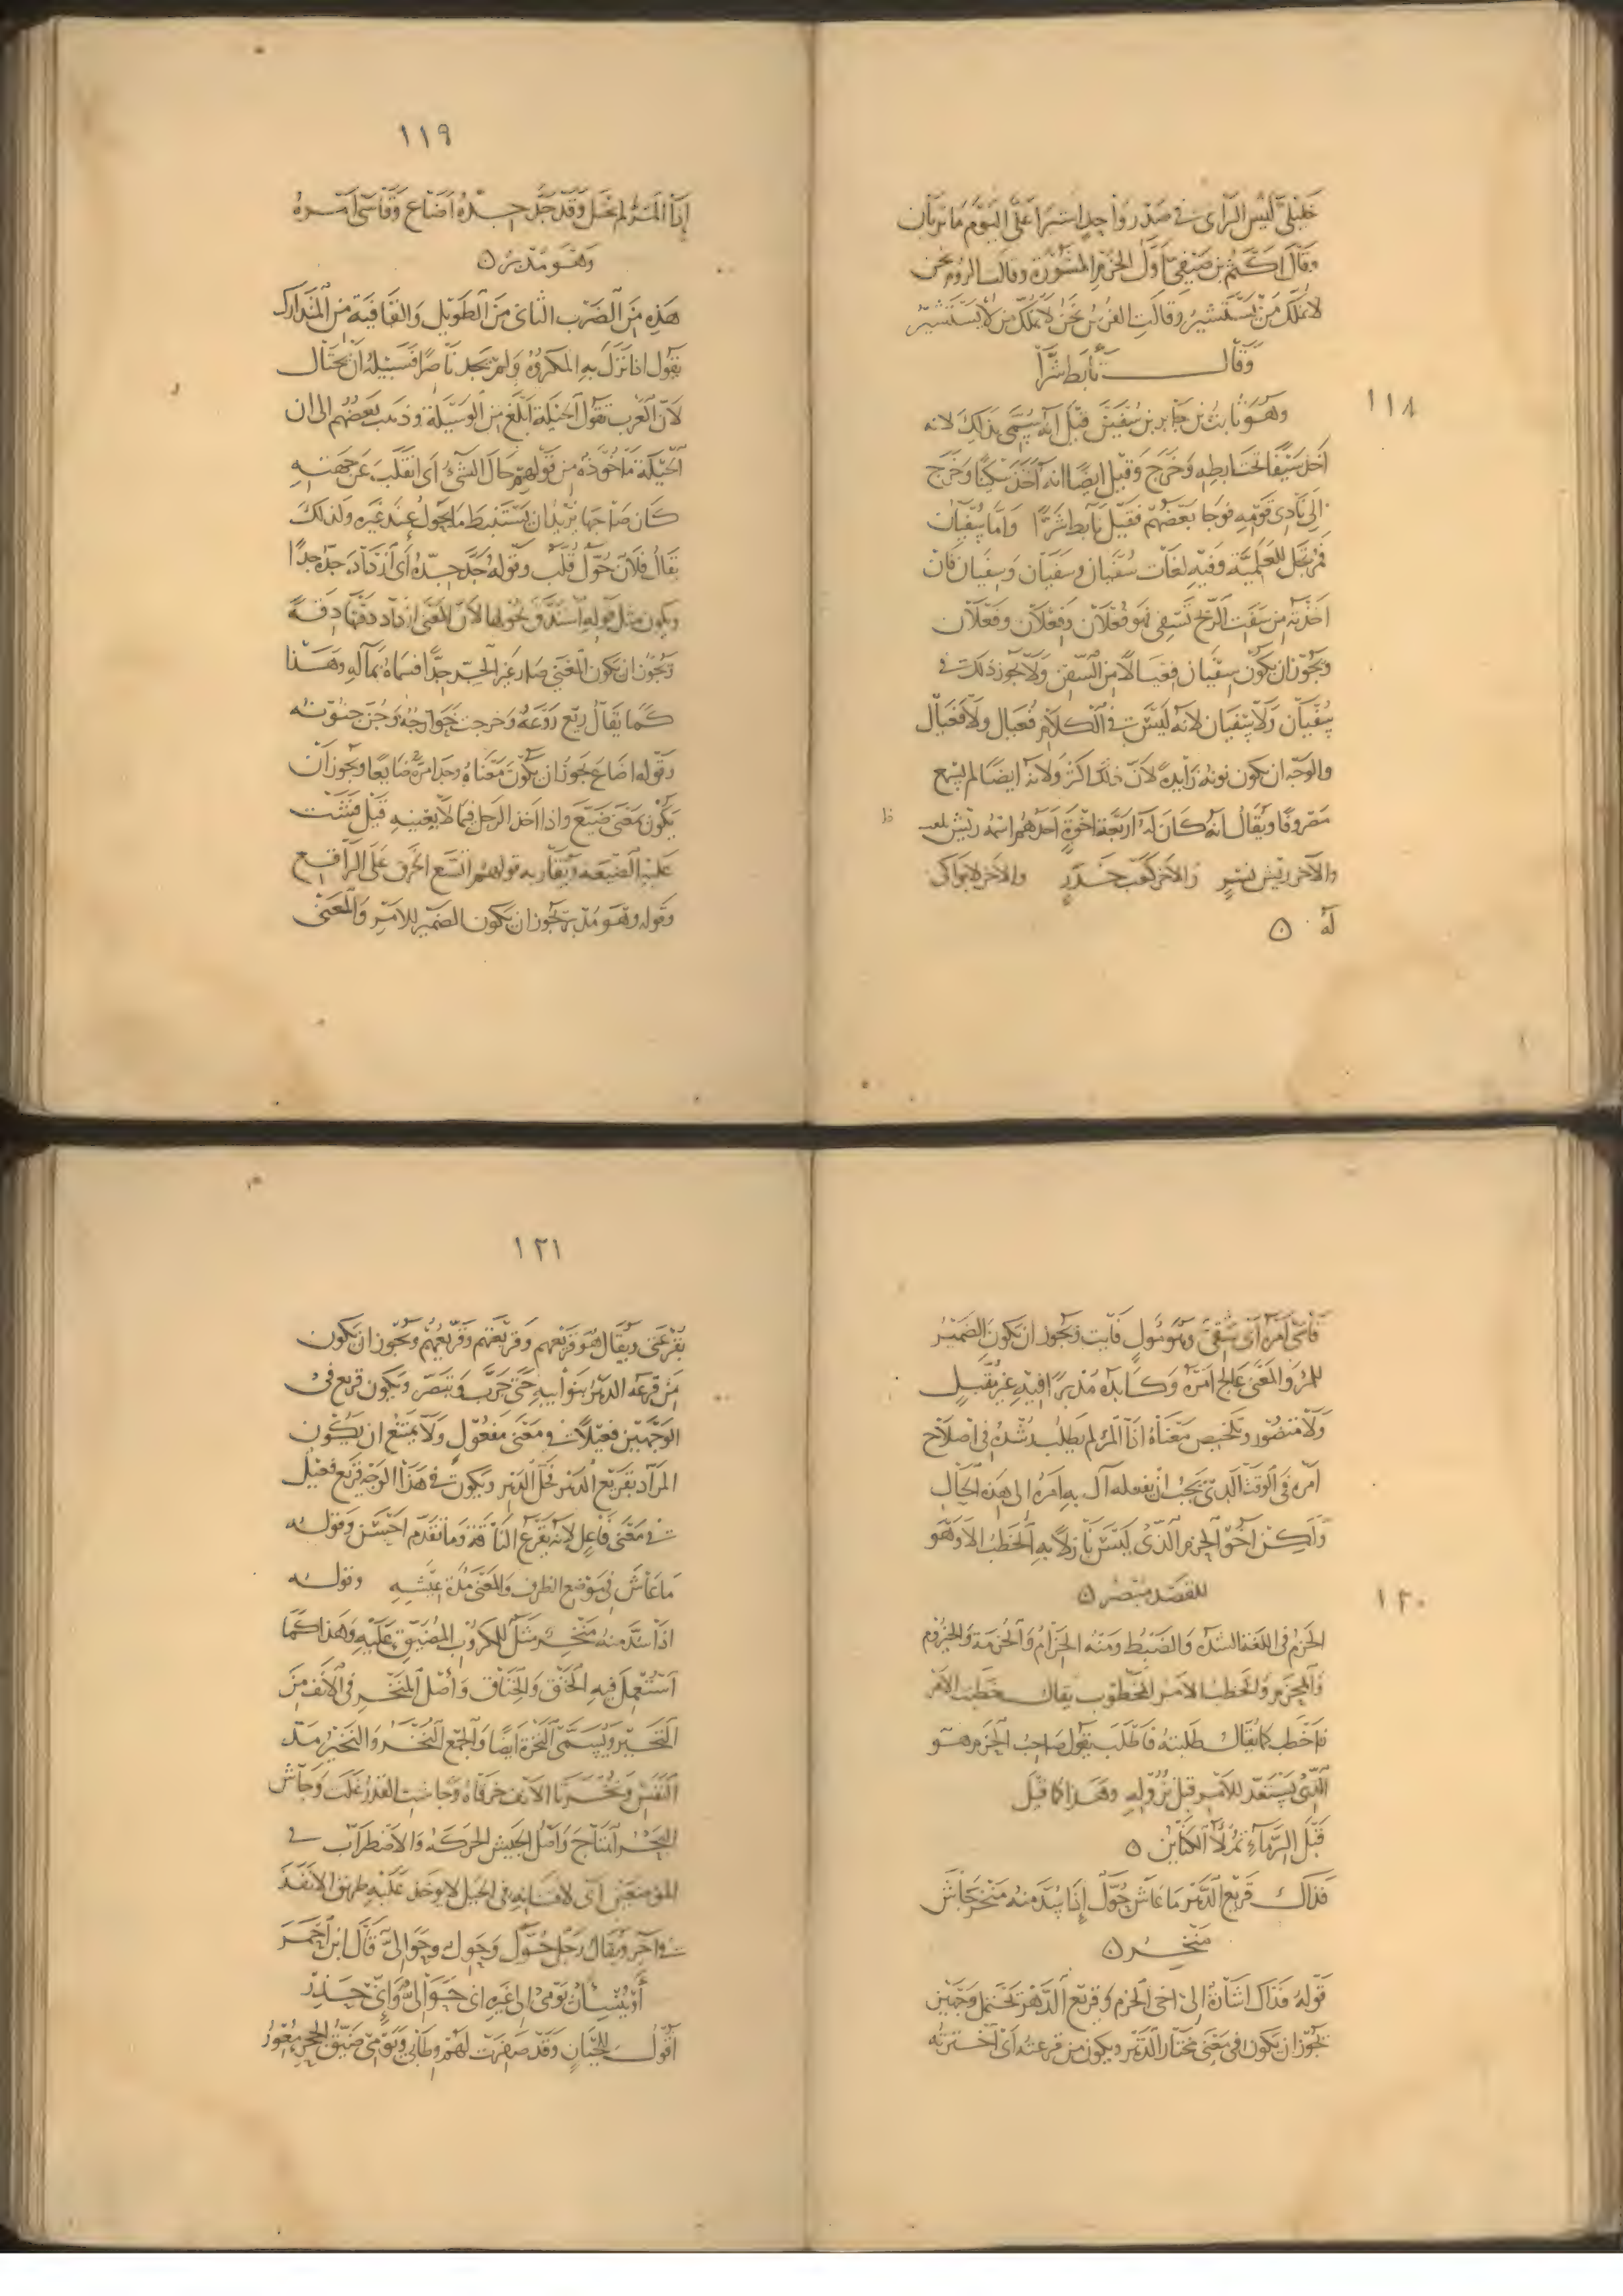 ١١٨
خليلي ليس الرأى في صدر واحد اشيرا علي اليوم ما تريان
وقال اكثم بن صيفي اول الحزم المشورة وقالت الروم نحن
لا نملك من يستشير وقالت الفرس نحن لا نملك من لا يستشير
وقال تأبط شرا
وهو ثابت بن جابر بن سفين قيل انه سمى بذلك لانه
اخذ سيفا تحت ابطه وخرج وقيل ايضا انه اخذ سكينا وخرج
الى نادى قومه فوجا بعضهم فقيل تأبط شرا واما سفيان
فمرتجل للعلمية وفيه لغات سفيان وسفيان وسفيان فان
اخذته من سفت الريح تسفى فهو فعلان وفعلان وفعلان
ويجوز ان يكون سفيان فعيالا من السفن ولا يجوز ذلك في
سفيان ولا سفيان لانه ليس في الكلام فعيال ولا فعيال
والوجه ان يكون نونه زايدة لان ذلك اكثر ولانه ايضا لم يسمع
مصروفا ويقال انه كان له اربعة اخوة احدهم اسمه ريش لعب
والآخر ريش نسر والآخر كعب حدر والآخر لا بواكى
له
١١٩
إذا المرء لم يحتل وقد جد جده اضاع وقاسى امره
وهو مدبر
هذه من الضرب الثانى من الطويل والقافية من المتدارك
يقول اذا نزل به المكروه ولم يجد ناصرا فسبيله ان يحتال
لان العرب تقول الحيلة ابلغ من الوسيلة وذهب بعضهم الى ان
الحيلة مأخوذة من قولهم حال الشئ اى انقلب عن جهته
كان صاحبها يريد ان يستنبط ما يحول عند غيره ولذلك
يقال فلان حول قلب وقوله جد جده أى ازداد جده جدا
ويكون مثل قوله استدق نحولها لان المعنى ازداد دقتها دقة
ويجوز ان يكون المعنى صار غير الجد جدا فسماه بمآله وهذا
كما يقال ريع روعه وخرجت خوارجه وجن جنونه
وقوله اضاع يجوز ان يكون معناه وجد امره ضايعا ويجوز ان
يكون بمعنى ضيع واذا اخذ الرجل فيما لا يعنيه قيل فشت
عليه الضيعة ويقاربه قولهم اتسع الخرق على الراقع
وقوله وهو مدبر يجوز ان يكون الضمير للامر والمعنى
١٢٠
قاسى امره اى شقى وهو مول فايت ويجوز ان يكون الضمير
للمرء والمعنى عالج امره وكابده مدبرا فيه غير مقبل
ولا منصور وتلخيص معناه اذا المرء لم يطلب رشده في اصلاح
امره فى الوقت الذى يجب ان يفعله آل به امره الى هذه الحال
ولكن اخو الحزم الذى ليس نازلا به الخطب الا وهو
للقصد مبصر
الحزم فى اللغة الشدة والضبط ومنه الحزام والحزمة والحيزوم
والمحزم والخطب الامر المخطوب يقال خطبت الامر
فاخطب كما يقال طلبته فاطلب يقول صاحب الحزم هو
الذى يستعد للامر قبل نزوله وهذا كما قيل
قبل الرماء تملأ الكناين
فذاك قريع الدهر ما عاش حول إذا سد منه منخر جاش
منخر
قوله فذاك اشارة الى اخى الحزم وقريع الدهر يحتمل وجهين
يجوز ان يكون فى معنى مختار الدهر ويكون من قرعته اى اخترته
١٢١
بقرعتى ويقال هو قريعهم وقريعتهم وقريعهم ويجوز ان يكون
من قرعه الدهر بنوايبه حتى جرب وتبصر ويكون قريع فى
الوجهين فعيلا في معنى مفعول ولا يمتنع ان يكون
المراد بقريع الدهر فحل الدهر ويكون في هذا الوجه قريع فعيل
في معنى فاعل لانه يقرع الناقة وما تقدم احسن وقوله
ما عاش في موضع الظرف والمعنى مدة عيشه وقوله
اذا سد منه منخر مثل للمكروب المضيق عليه وهذا كما
استعمل فيه الخنق والخناق وأصل المنخر فى الانف من
النخير ويسمى النخرة ايضا والجمع النخر والنخير مد
النفس ونخرتا الانف خرقاه وجاشت القدر غلت وجاش
البحر اهتاج واصل الجيش الحركة والاضطراب في
الموضعين اى لافتنانه فى الحيل لا يوخذ عليه طريق الا نفذ
في آخر ويقال رجل حول وحول وحوالى قال ابن احمر
أو ينسأن يومى الى غيره انى حوالى وانى حذر
اقول للحيان وقد صفرت لهم وطابى ويومى ضيق الجحر معور